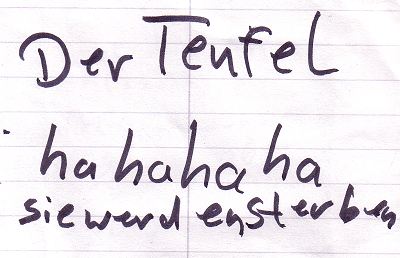 Der Teufel
ha ha ha ha
sie werden sterben